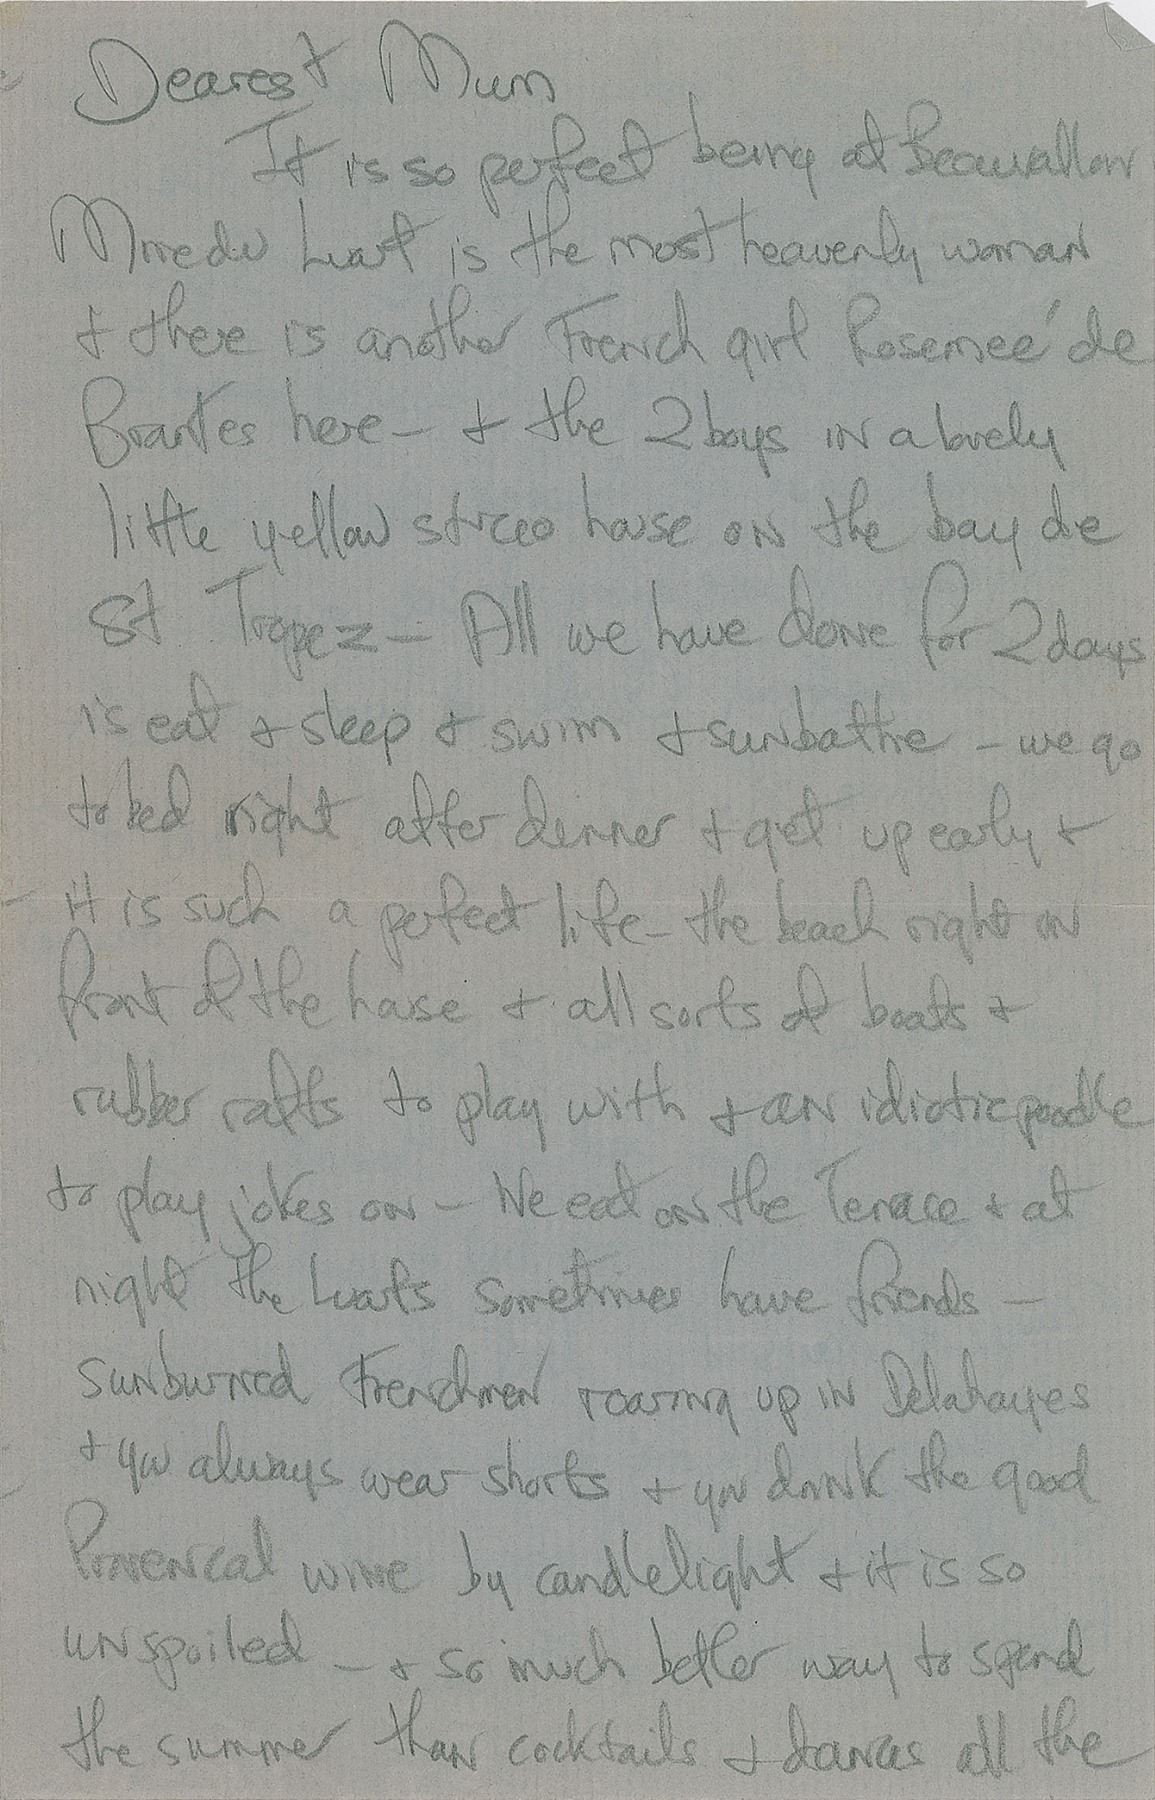 Dearest Mum
It is so perfect being at Beauvallon
Mme du Luart is the most heavenly woman
+ there is another French girl Rosemeé de
Brantes here – + the 2 boys in a lovely
little yellow stucco house on the bay de
St Tropez – All we have done for 2 days
is eat + sleep + swim + sunbathe – we go
to bed right after dinner + get up early +
it is such a perfect life – the beach right in
front of the house + all sorts of boats +
rubber rafts to play with + an idiotic poodle
to play jokes on – We eat on the Terrace + at
night the Luarts sometimes have friends –
sunburned Frenchmen roaring up in Delahayes
+ you always wear shorts + you drink the good
Provencal wine by candlelight + it is so
unspoiled – + so much better way to spend
the summer than cocktails + dances all the